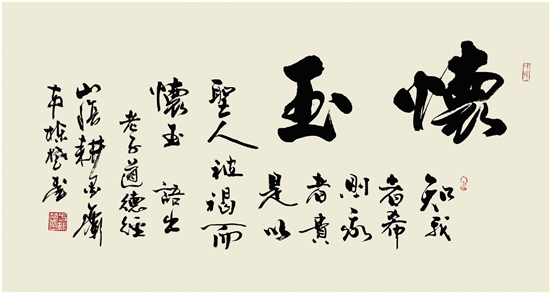 懷玉
知我
者希
則我
者貴
是以
聖人被褐而
懷玉 語出
老子道德經
山陰耕